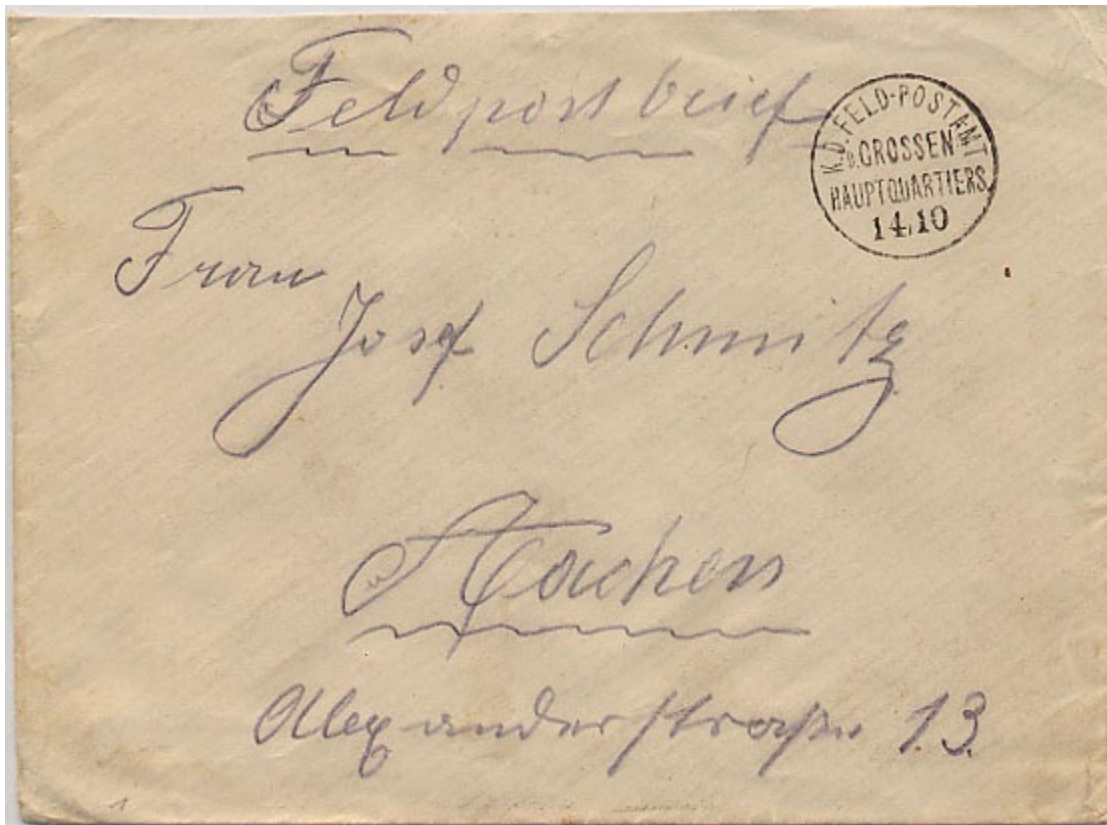 Feldpostbrief
K.D. FELD-POSTAMT
D. GROSSEN
HAUPTQUARTIERS
14.10
Frau
Josef Schmitz
Aachen
Alexanderstraße 13.